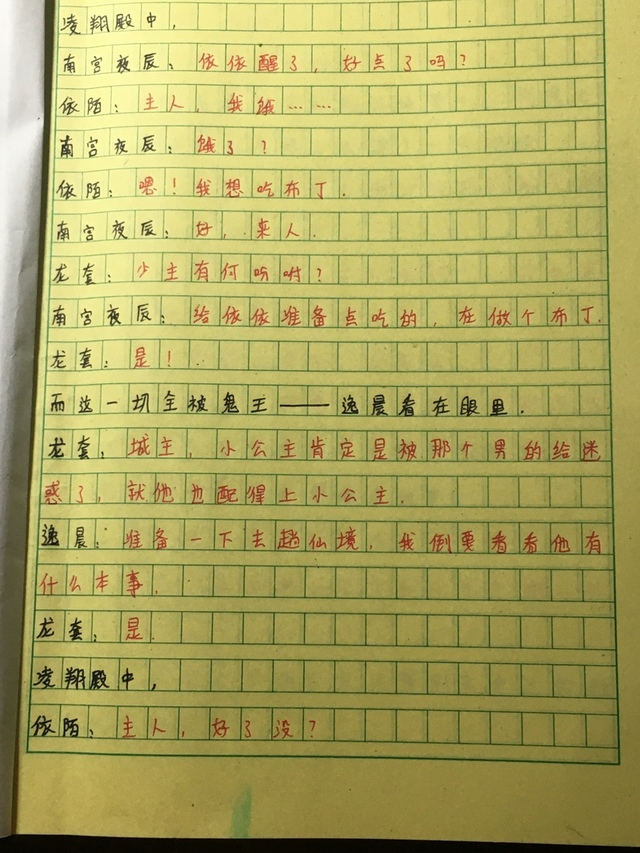 凌翔殿中，
南宫夜辰：依依醒了，好点了吗？
依陌：主人，我饿……
南宫夜辰：饿了？
依陌：嗯！我想吃布丁.
南宫夜辰：好，来人.
龙套：少主有何吩咐？
南宫夜辰：给依依准备点吃的，在做个布丁.
龙套：是！.
而这一切全被鬼王——逸晨看在眼里.
龙套：城主，小公主肯定是被那个男的给迷
惑了，就他也配得上小公主.
逸晨：准备一下去趟仙境，我倒要看看他有
什么本事.
龙套：是.
凌翔殿中，
依陌：主人，好了没？